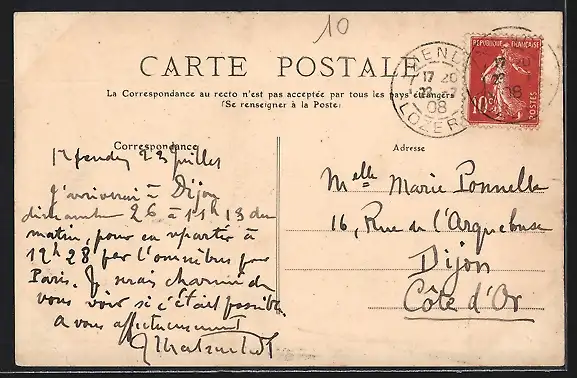 10
CARTE POSTALE
La Correspondance au recto n'est pas acceptée par tous les pays étrangers
(Se renseigner à la Poste)
MENDE
17 20
22 -7
08
LOZERE
REPUBLIQUE FRANÇAISE
10c
POSTES
Correspondance
Mende, 22 Juillet
J'arriverai à Dijon
dimanche 26 à 11h 13 du
matin, pour en repartir à
12h 28 par l'omnibus pour
Paris. Je serais charmé de
vous voir si c'était possible.
A vous affectueusement
Adresse
Melle Marie Ponnelle
16, Rue de l'Arquebuse
Dijon
Côte d'Or